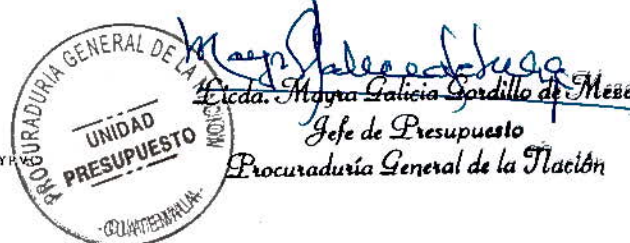 PROCURADURIA GENERAL DE LA NACION
UNIDAD
PRESUPUESTO
Licda. Mayra Galicia Gordillo de
Jefe de Presupuesto
Procuraduría General de la Nación